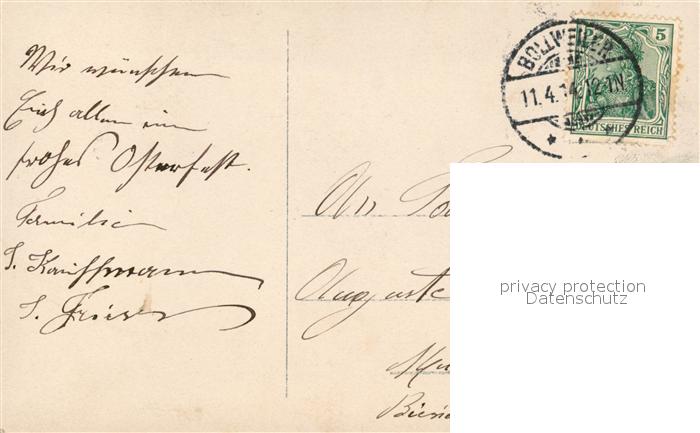 Wir wünschen
Euch allen ein
frohes Osterfest.
Familie
J. Kauffmann
J.
BOLLWEILER
11.4.14. 12-1N.
5
DEUTSCHES REICH
An
Auguste
privacy protection
Datenschutz